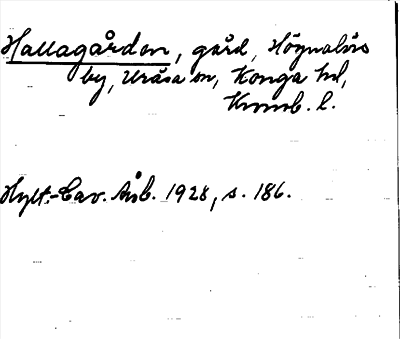 Hallagården, gård, Högnalövs
by, Uråsa sn, Konga hd,
Kronb. l.
Hylt.-Cav. Årsb. 1928, s. 186.